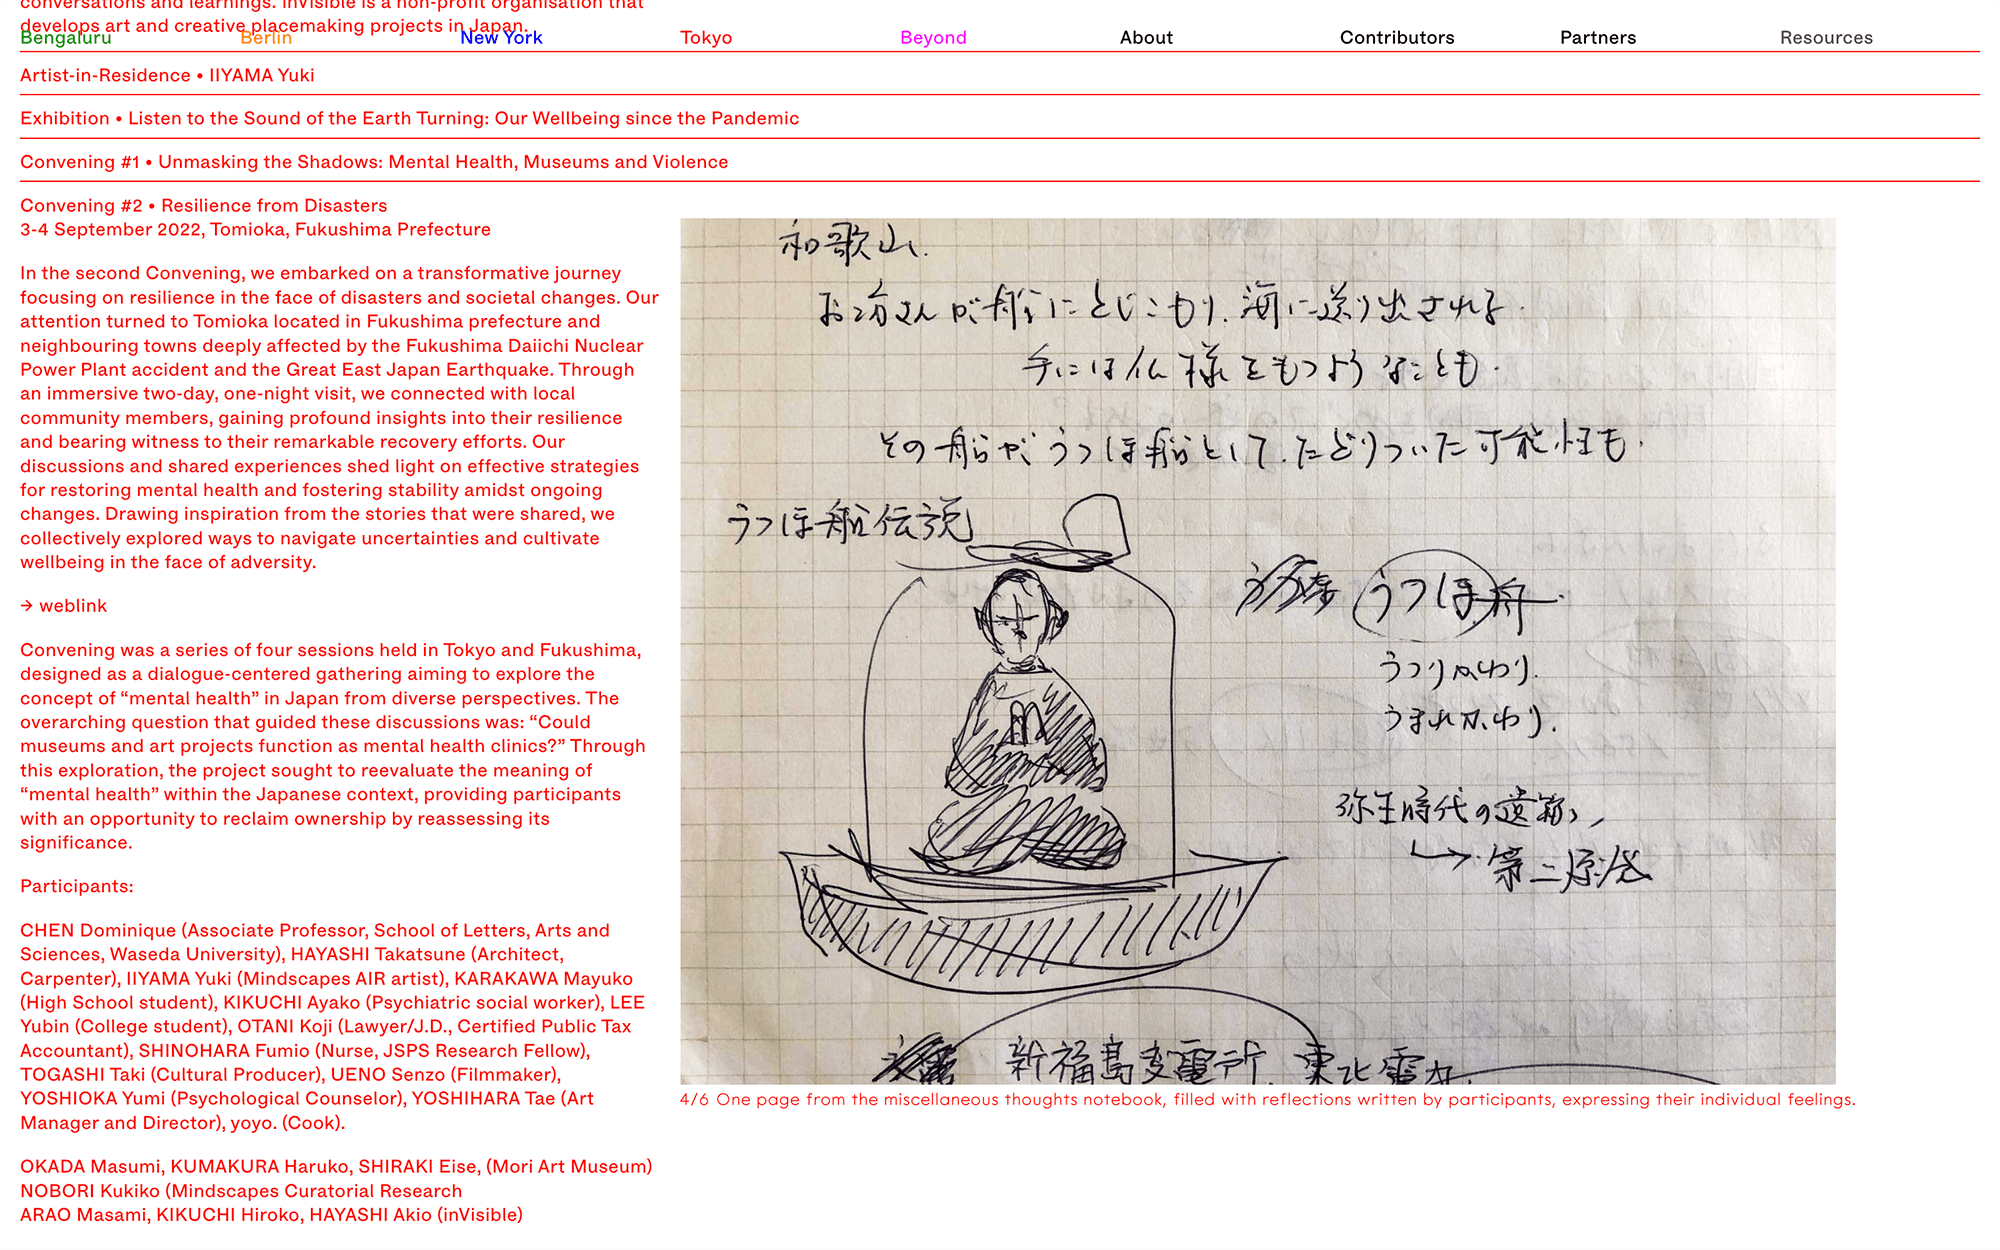 conversations and learnings. inVisible is a non-profit organisation that
develops art and creative placemaking projects in Japan.
Bengaluru Berlin New York Tokyo Beyond About Contributors Partners Resources
Artist-in-Residence • IIYAMA Yuki
Exhibition • Listen to the Sound of the Earth Turning: Our Wellbeing since the Pandemic
Convening #1 • Unmasking the Shadows: Mental Health, Museums and Violence
Convening #2 • Resilience from Disasters
3-4 September 2022, Tomioka, Fukushima Prefecture
In the second Convening, we embarked on a transformative journey
focusing on resilience in the face of disasters and societal changes. Our
attention turned to Tomioka located in Fukushima prefecture and
neighbouring towns deeply affected by the Fukushima Daiichi Nuclear
Power Plant accident and the Great East Japan Earthquake. Through
an immersive two-day, one-night visit, we connected with local
community members, gaining profound insights into their resilience
and bearing witness to their remarkable recovery efforts. Our
discussions and shared experiences shed light on effective strategies
for restoring mental health and fostering stability amidst ongoing
changes. Drawing inspiration from the stories that were shared, we
collectively explored ways to navigate uncertainties and cultivate
wellbeing in the face of adversity.
→ weblink
Convening was a series of four sessions held in Tokyo and Fukushima,
designed as a dialogue-centered gathering aiming to explore the
concept of “mental health” in Japan from diverse perspectives. The
overarching question that guided these discussions was: “Could
museums and art projects function as mental health clinics?” Through
this exploration, the project sought to reevaluate the meaning of
“mental health” within the Japanese context, providing participants
with an opportunity to reclaim ownership by reassessing its
significance.
Participants:
CHEN Dominique (Associate Professor, School of Letters, Arts and
Sciences, Waseda University), HAYASHI Takatsune (Architect,
Carpenter), IIYAMA Yuki (Mindscapes AIR artist), KARAKAWA Mayuko
(High School student), KIKUCHI Ayako (Psychiatric social worker), LEE
Yubin (College student), OTANI Koji (Lawyer/J.D., Certified Public Tax
Accountant), SHINOHARA Fumio (Nurse, JSPS Research Fellow),
TOGASHI Taki (Cultural Producer), UENO Senzo (Filmmaker),
YOSHIOKA Yumi (Psychological Counselor), YOSHIHARA Tae (Art
Manager and Director), yoyo. (Cook).
OKADA Masumi, KUMAKURA Haruko, SHIRAKI Eise, (Mori Art Museum)
NOBORI Kukiko (Mindscapes Curatorial Research
ARAO Masami, KIKUCHI Hiroko, HAYASHI Akio (inVisible)
和歌山.
お坊さんが船にとじこもり、海に送り出される.
手には仏様をもつようなことも.
その船がうつほ船として、たどりついた可能性も.
うつほ船伝説
うつほ舟.
うつりかわり.
うまれかわり.
弥生時代の遺跡、
→ 第二原発
新福島変電所. 東北電力.
4/6 One page from the miscellaneous thoughts notebook, filled with reflections written by participants, expressing their individual feelings.